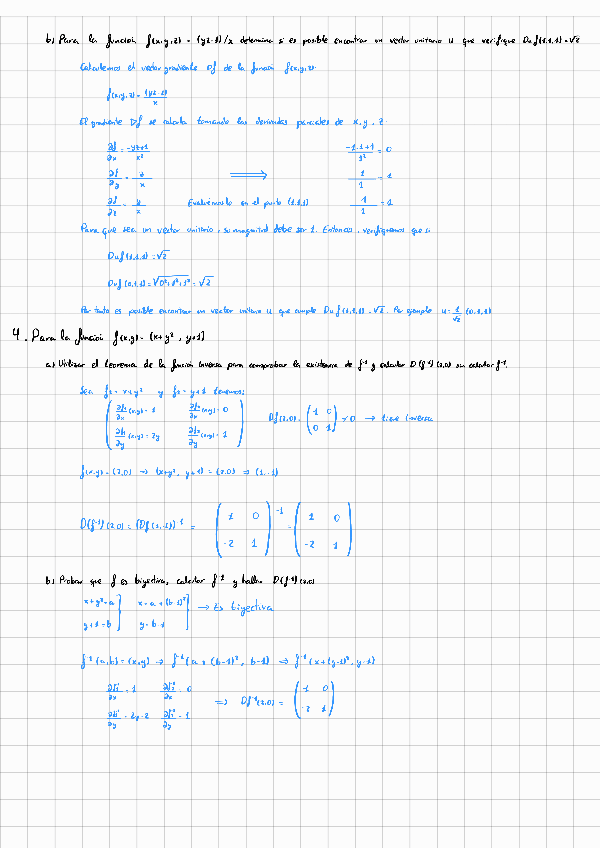 b) Para la función f(x,y,z) = (yz-1)/x determina si es posible encontrar un vector unitario u que verifique Du f(1,1,1) = √2
Calculemos el vector gradiente Df de la función f(x,y,z).
f(x,y,z) = (yz-1)/x
El gradiente Df se calcula tomando las derivadas parciales de x, y, z.
∂f/∂x = -yz+1/x² -1·1+1/1² = 0
∂f/∂y = z/x ⟹ 1/1 = 1
∂f/∂z = y/x Evaluémoslo en el punto (1,1,1) 1/1 = 1
Para que sea un vector unitario, su magnitud debe ser 1. Entonces, verifiquemos que si
Du f(1,1,1) = √2
Du f(0,1,1) = √0²+1²+1² = √2
Por tanto es posible encontrar un vector unitario u que cumple Du f(1,1,1) = √2. Por ejemplo u = 1/√2 (0,1,1)
4. Para la función f(x,y) = (x+y², y+1)
a) Utilizar el teorema de la función inversa para comprobar la existencia de f⁻¹ y calcular D(f⁻¹)(2,0) sin calcular f⁻¹.
Sea f₁ = x+y² y f₂ = y+1 tenemos:
∂f₁/∂x (x,y) = 1 ∂f₂/∂x (x,y) = 0 Df(2,0) = (1 0
∂f₁/∂y (x,y) = 2y ∂f₂/∂y (x,y) = 1 0 1) ≠ 0 → tiene inversa
f(x,y) = (2,0) → (x+y², y+1) = (2,0) ⇒ (1,-1)
D(f⁻¹)(2,0) = (Df(1,-1))⁻¹ = (1 0 -2 1)⁻¹ = (1 0 -2 1)
b) Probar que f es biyectiva, calcular f⁻¹ y hallar D(f⁻¹)(2,0)
x+y² = a x = a + (b-1)² → Es biyectiva
y+1 = b y = b-1
f⁻¹(a,b) = (x,y) → f⁻¹(a + (b-1)², b-1) ⇒ f⁻¹(x+(y-1)², y-1)
∂f₁/∂x = 1 ∂f₂/∂x = 0 ⇒ Df⁻¹(2,0) = (1 0
∂f₁/∂y = 2y-2 ∂f₂/∂y = 1 -2 1)